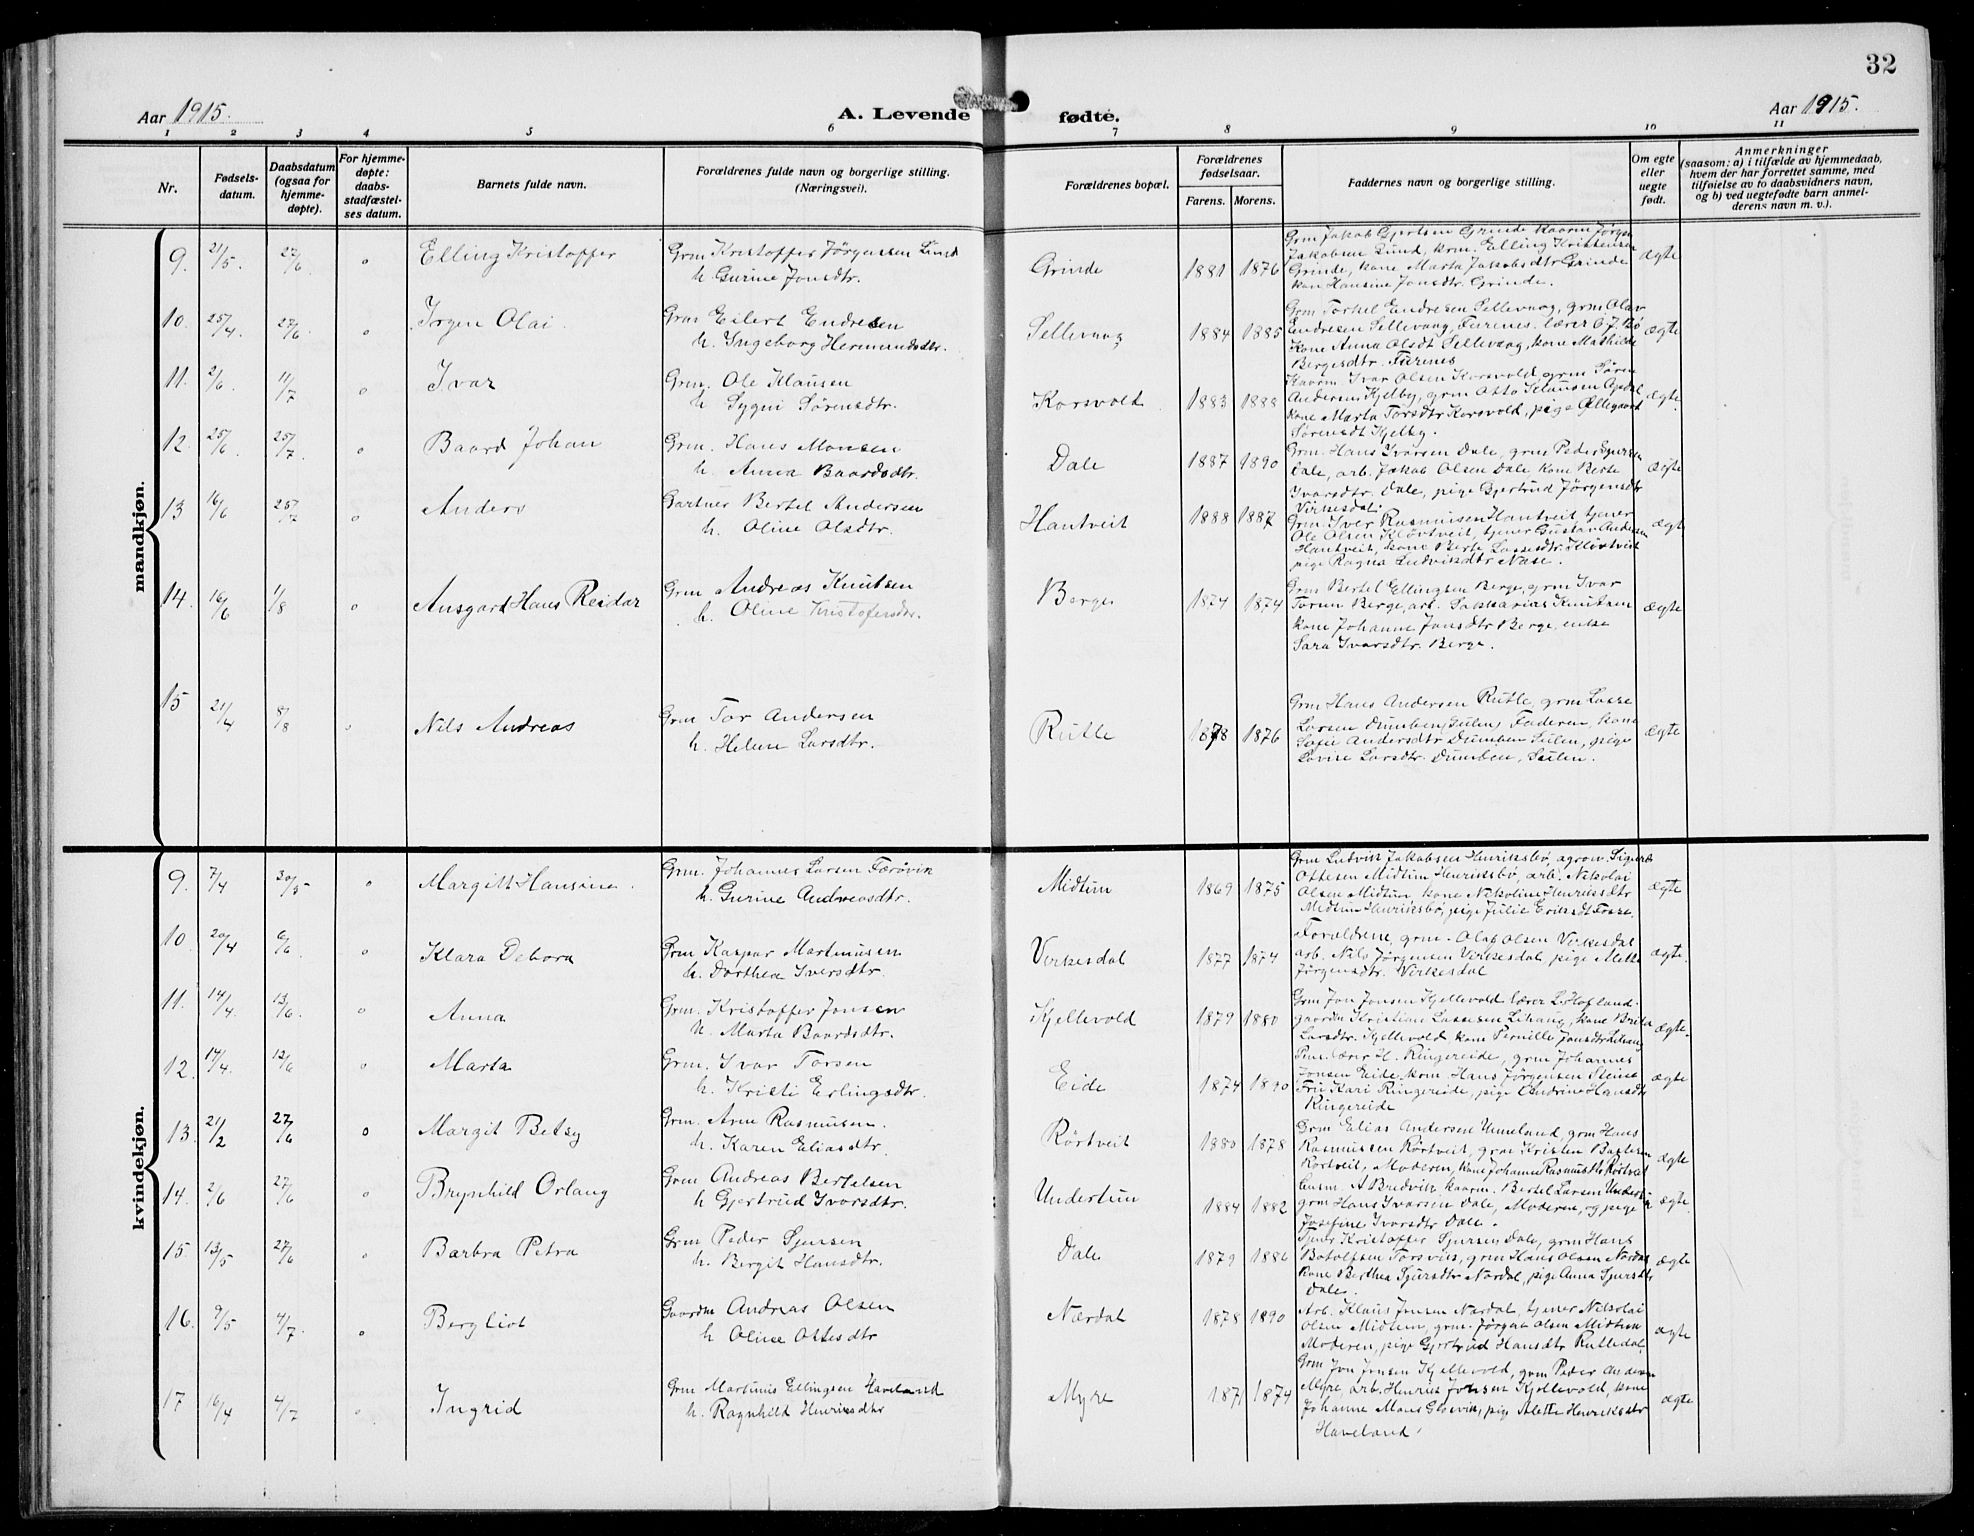 32
Aar 1915.
A. Levende fødte.
Aar 1915.
1 2 3 4 5 6 7 8 9 10 11
Nr.
Fødsels-
datum.
Daabsdatum
(ogsaa for
hjemme-
døpte).
For hjemme-
døpte:
daabs-
stadfæstel-
ses datum.
Barnets fulde navn.
Forældrenes fulde navn og borgerlige stilling.
(Næringsvei).
Forældrenes bopæl.
Forældrenes
fødselsaar.
Farens. Morens.
Faddernes navn og borgerlige stilling.
Om egte
eller
uegte
født.
Anmerkninger
(saasom: a) i tilfælde av hjemmedaab,
hvem der har forrettet samme, med
tilføielse av to daabsvidners navn,
og b) ved uegtefødte barn anmel-
derens navn m. v.).
mandkjøn.
9. 21/5. 27/6 o Elling Kristoffer
Grm Kristoffer Jørgensen Lund
h. Gurine Jonsdtr.
Grinde 1881 1876
Grm Jakob Gjertsen Grinde kaarm Jørgen
Jakobsen Lund, krm. Elling Kristensen
Grinde, kone Marta Jakobsdtr Grinde
kone Hansine Jonsdtr. Grinde.
ægte
10. 25/4. 27/6. o Jørgen Olai.
Grm Eilert Endresen
h. Ingeborg Hermundsdtr.
Sellevaag 1884 1885
Grm Torkel Endresen Sellevaag, grm Olav
Endresen Sellevaag, Furenes. lærer O. J. Bø
Kone Anna Olsdt Sellevaag, kone Mathilde
Bergesdtr. Furenes
ægte
11. 2/6. 11/7 o Ivar
Grm. Ole Klausen
h. Sygni Sørensdtr.
Korsvold 1883 1888
Kaarm. Ivar Olsen Korsvold grm Søren
Andersen Kjelby, grm Otto Klausen
kone Marta Torsdtr Korsvold, pige
Sørensdt Kjelby.
ægte.
12. 25/6. 25/7. o Baard Johan
Grm. Hans Monsen
h. Anna Baardsdtr.
Dale 1887 1890
Grm. Hans Ivarsen Dale, grm Peder Sjursen
Dale, arb. Jakob Olsen Dale kone Berte
Ivarsdtr. Dale, pige Gjertrud Jørgensdtr
Virkesdal.
ægte
13 16/6 25/7 o Anders
Gartner Bertel Andersen
h. Oline Olsdtr.
Hantveit 1888 1887
Grm. Iver Rasmussen Hantveit, tjener
Ole Olsen Kløvtveit, tjener Gustav Andersen
Hantveit, kone Berte Lassesdtr. Kløvtveit
pige Ragna Ludviksdtr Næse.
ægte
14. 16/6 1/8 o Ansgard Hans Reidar
Grm Andreas Knutsen
h. Oline Kristofersdtr.
Berge 1874 1874
Grm Bertel Ellingsen Berge, grm Ivar
Torsen Berge, arb. Sakkarias Knutsen
kone Johanne Jonsdtr Berge, enke
Sara Ivarsdtr. Berge.
ægte
15 21/4 8/8 o Nils Andreas
Grm Tor Andersen
h. Helene Larsdtr.
Rutle 1878 1876
Grm Hans Andersen Rutle, grm Lasse
Larsen Dumben, Gulen, Faderen, kone
Sofie Andersdtr Dumben Gulen, pige
Lovise Larsdtr. Dumben, Gulen.
ægte
kvindekjøn.
9. 7/4 30/5 o Margitt Hansine.
Grm. Johannes Larsen Færøvik
h. Gurine Andreasdtr.
Midtun 1869 1875
Grm Ludvik Jakobsen Henriksbø, agron. Sigurd
Ottesen Midtun Henriksbø, arb. Nikolai
Olsen Midtun, kone Nikoline Henriksdtr
Midtun Henriksbø, pige Julie Eriksdt Fosse.
ægte
10. 20/4 6/6 o Klara Debora
Grm Kaspar Martinusen
h. Dorthea Iversdtr.
Virkesdal 1877 1874
Forældrene, grm. Olaf Olsen Virkesdal
arb. Nils Jørgensen Virkesdal, pige Mette
Jørgensdtr. Virkesdal
ægte.
11. 14/4. 13/6. o Anna
Grm. Kristoffer Jonsen
h. Marta Baardsdtr.
Kjellevold 1879 1880
Grm Jon Jonsen Kjellevold lærer L. Hofland.
gaardm Kristian Lassesen Lihaug, kone Brita
Larsdtr. Kjellevold, kone Pernille Jonsdtr Lihaug
ægte.
12. 17/4. 13/6 o Marta
Grm. Ivar Torsen
h. Kristi Erlingsdtr.
Eide 1874 1890
Pens. lærer H. Ringereide, grm Johannes
Jonsen Eide, krm. Hans Jørgensen Steine
Fru Kari Ringereide, pige Andrine Hansdt
Ringereide
ægte
13. 21/2 27/6 o Margit Betsy
Grm. Arne Rasmusen.
h. Karen Eliasdtr
Rørtveit 1880 1878
Grm Elias Andersen Unneland, grm Hans
Rasmussen Rørtveit, grm Kristen
Rørtveit, Moderen, kone Johanne Rasmusdtr Rørtveit
ægte
14. 2/6 27/6 o Brynhild Orlaug
Grm Andreas Bertelsen
h Gjertrud Ivarsdtr.
Undertun 1884 1882
A Bredvik, kaarm. Bertel Larsen Undertun
grm Hans Ivarsen Dale, Moderen, og pige
Josefine Ivarsdtr Dale.
ægte.
15. 13/5 27/6 o Barbra Petra
Grm Peder Sjursen
h. Bergit Hansdtr.
Dale 1879 1886
Tjener Kristoffer Sjursen Dale, grm Hans
Botolfsen Torsvik, grm Hans Olsen Nordal
kone Berthea Sjursdtr Nordal, pige Anna Sjursdtr
Dale.
ægte
16. 9/5 4/7. o Bergliot
Gaardm Andreas Olsen
h Oline Ottesdtr
Nærdal 1878 1890
Arb. Klaus Jensen Nærdal, tjener Nikolai
Olsen Midtun, grm. Jørgen Olsen Midtun
Moderen, pige Gjertrud Hansdtr Rutledal
ægte
17 16/4 4/7 o Ingrid
Grm Martinus Ellingsen Haveland
h. Ragnhild Henriksdtr
Myre 1871 1874
Grm Jon Jonsen Kjellevold, grm Peder Andersen
Myre, arb. Henrik Jonsen Kjellevold, kone
Johanne Mons Glosvik, pige Alette Henriksdtr
Haveland.
ægte